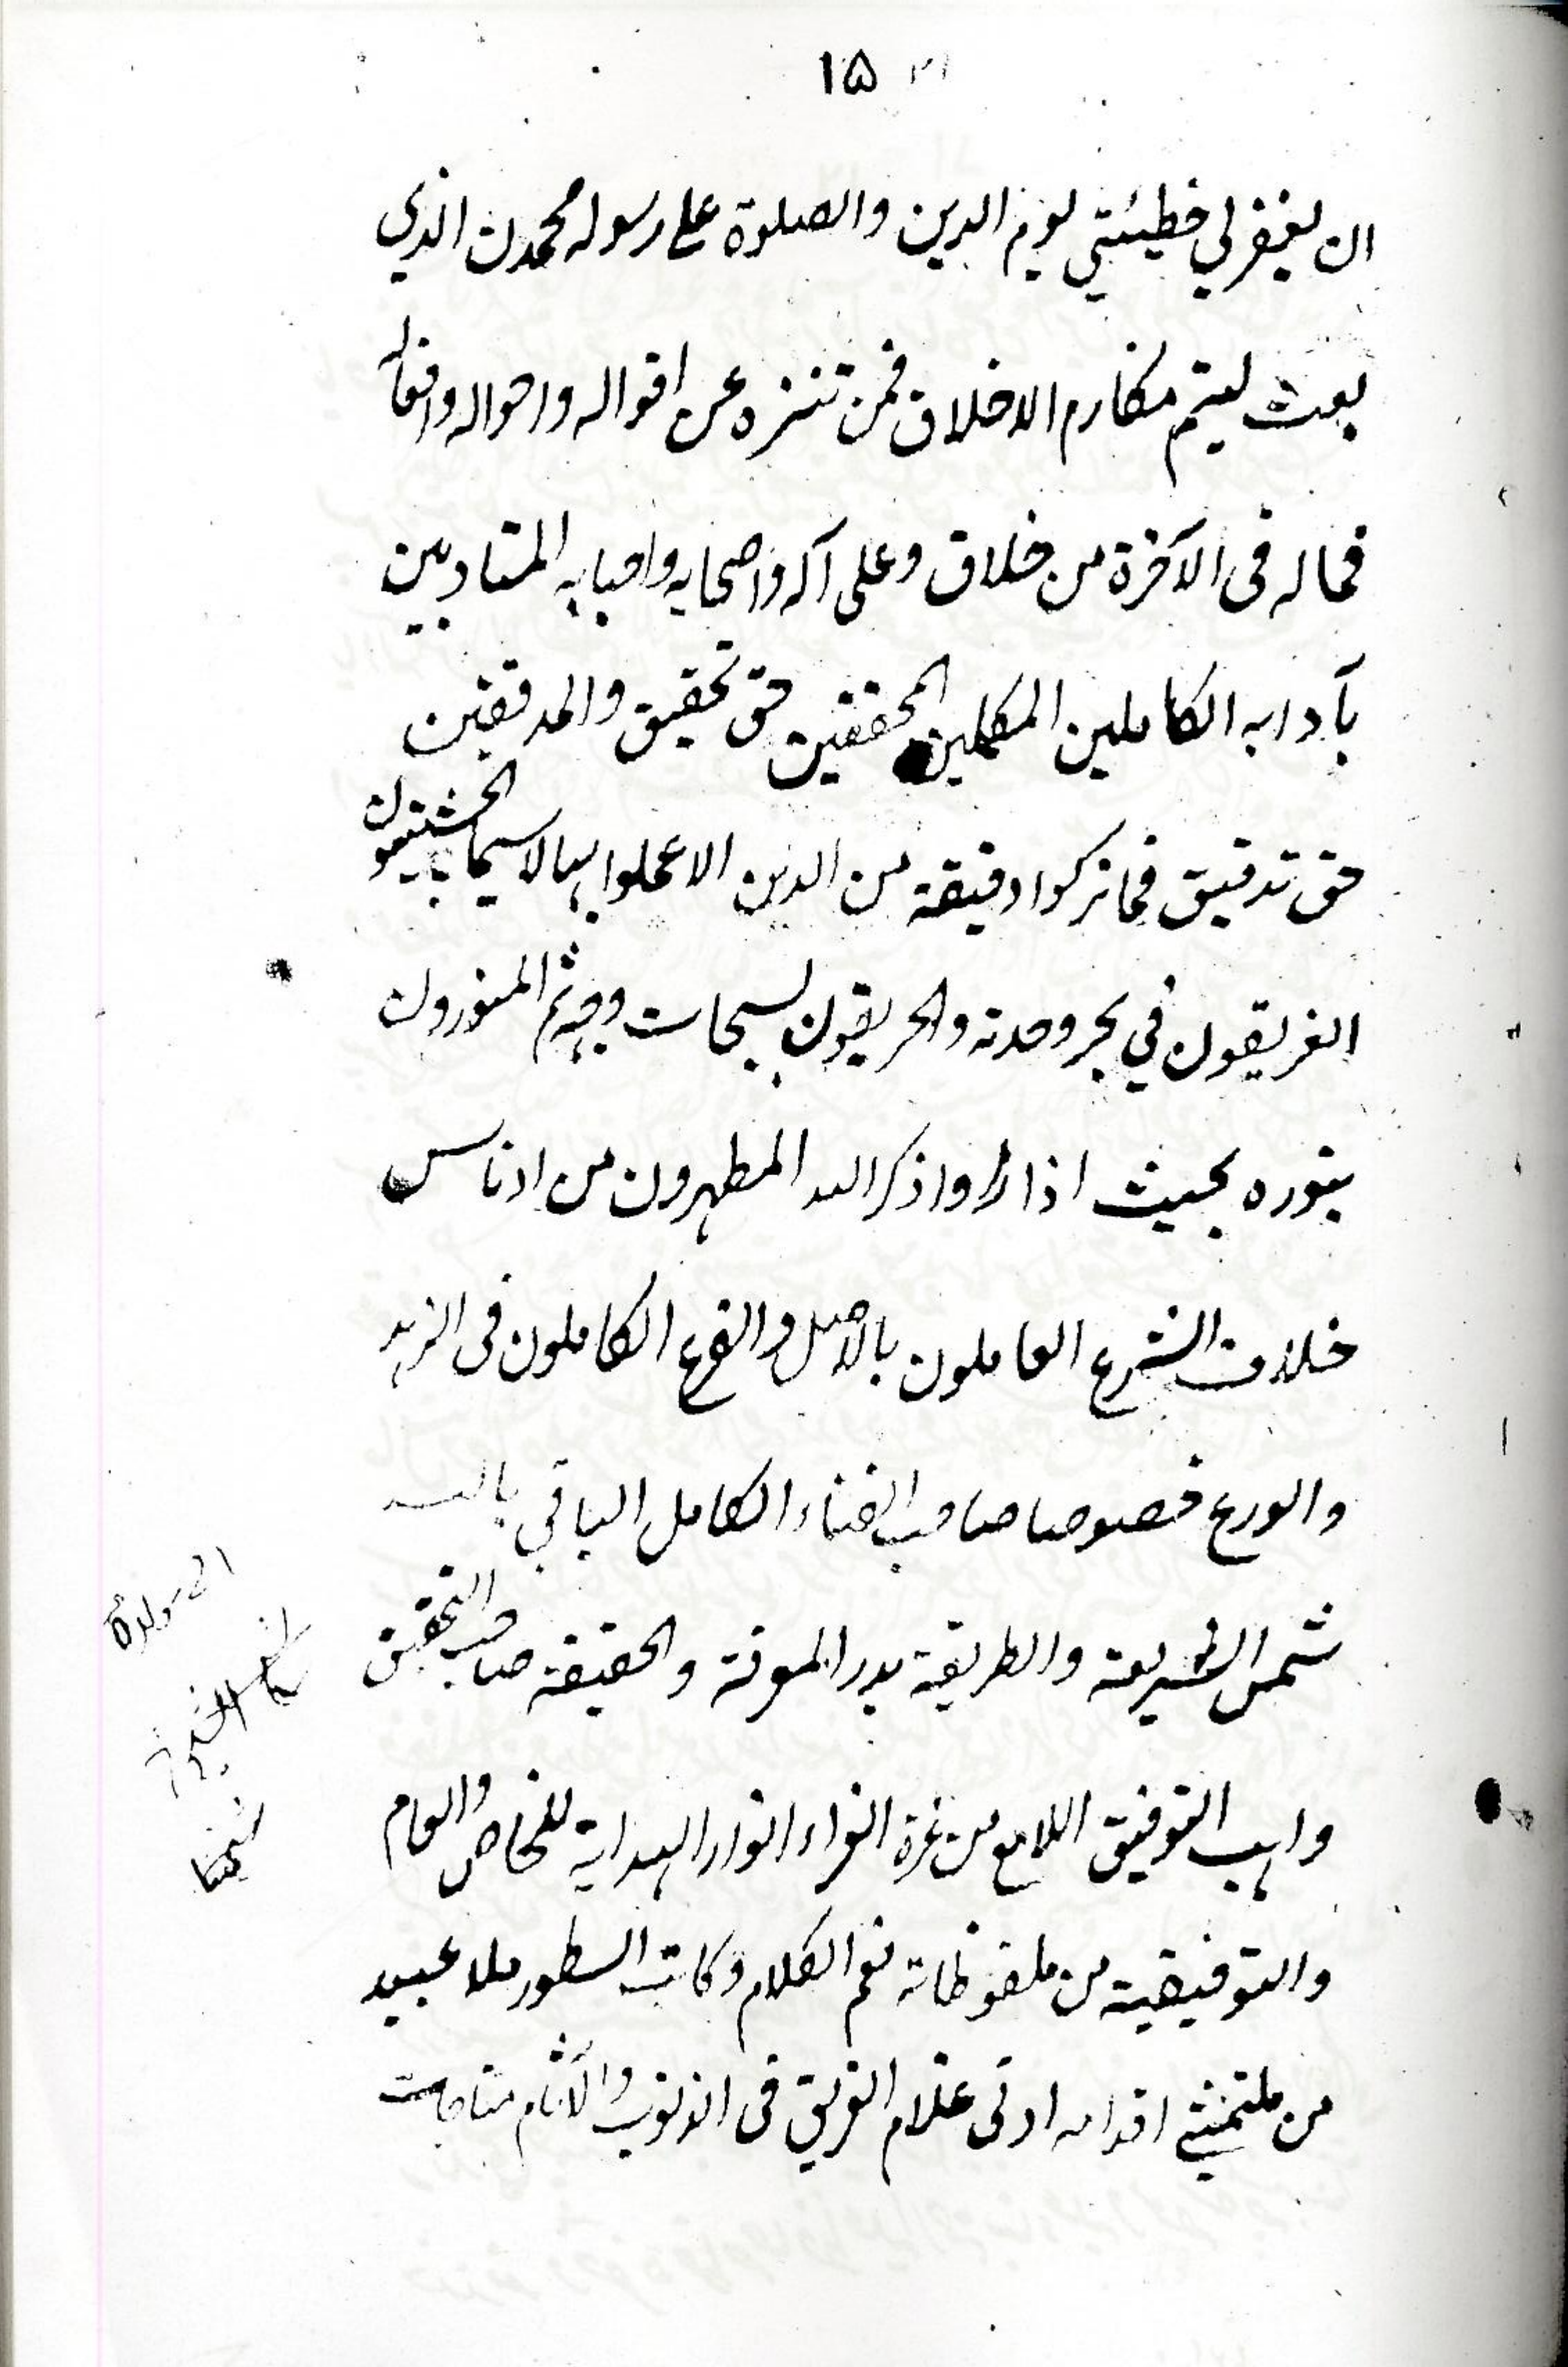 ۱۵
ان یغفر لی خطیئتی یوم الدین والصلوة علی رسوله محمدن الذی
بعث لیتم مکارم الاخلاق فمن تنزه عن اقواله واحواله وافعاله
فماله فی الآخرة من خلاق وعلی آله واصحابه واحبابه المتادبین
بآدابه الکاملین المکملین المحققین حق تحقیق والمدققین
حق تدقیق فما ترکوا دقیقة من الدین الا عملوا بها لاسیما الچشتیون
الغریقون فی بحر وحدته والحریقون بسبحات وجهه ثم المنورون
بنوره بحیث اذا رأوا ذکر الله المطهرون من ادناس
خلاف الشرع العاملون بالاصل والفرع الکاملون فی الزهد
والورع خصوصا صاحب الفناء الکامل الباقی بالله
شمس الشریعة والطریقة بدر المعرفة والحقیقة صاحب التحقیق
واهب التوفیق اللامع من غرة الغراء انوار الهدایة للخاص والعام
والتوفیقیة من ملفوظاته نعم الکلام وکاتب السطور ملا عبید
من ملتمثی اقدامه ادنی غلام الغریق فی الذنوب والآثام